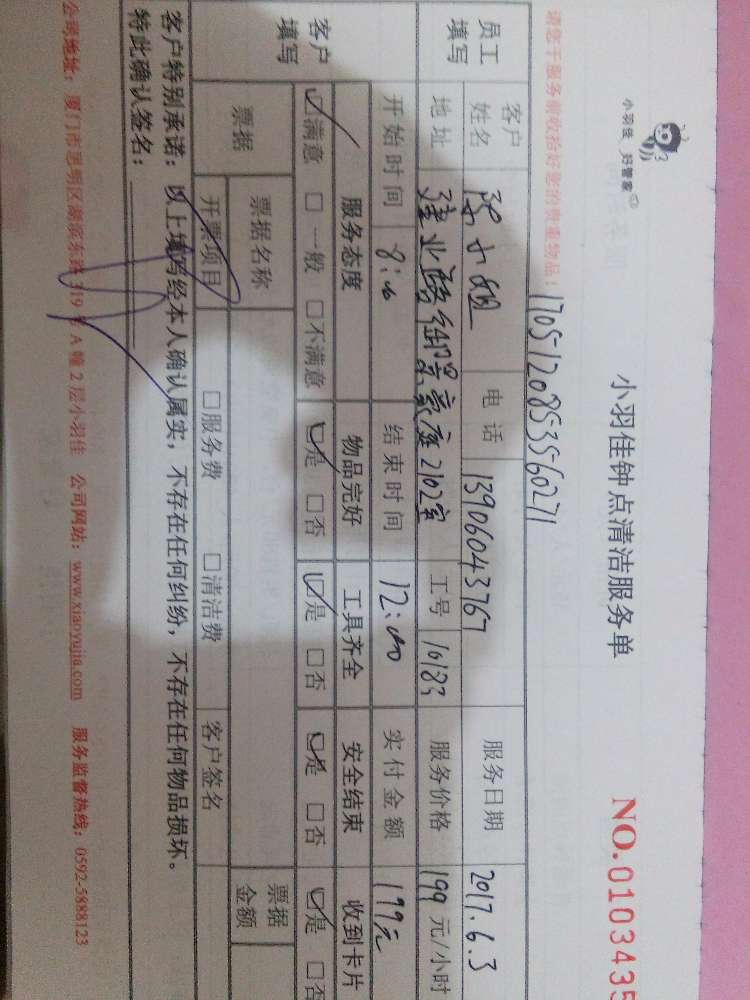 小羽佳 好管家
小羽佳钟点清洁服务单
NO.0103435
请您于服务前收拾好您的贵重物品!
1705120853560271
员工填写
客户姓名 小姐 电话 13906043767 服务日期 2017.6.3
地址 建业路御景豪庭2102室 工号 10183 服务价格 199 元/小时
开始时间 8:00 结束时间 12:00 实付金额 199元
客户填写
服务态度 物品完好 工具齐全 安全结束 收到卡片
☑满意 □一般 □不满意 ☑是 □否 ☑是 □否 ☑是 □否 ☑是 □否
票据 票据名称 □服务费 □清洁费 客户签名 票据金额
开票项目
客户特别承诺:以上填写经本人确认属实,不存在任何纠纷,不存在任何物品损坏。
特此确认签名:
公司地址:厦门市思明区湖滨东路319号A幢2层小羽佳 公司网站:www.xiaoyujia.com 服务监督热线:0592-5888123